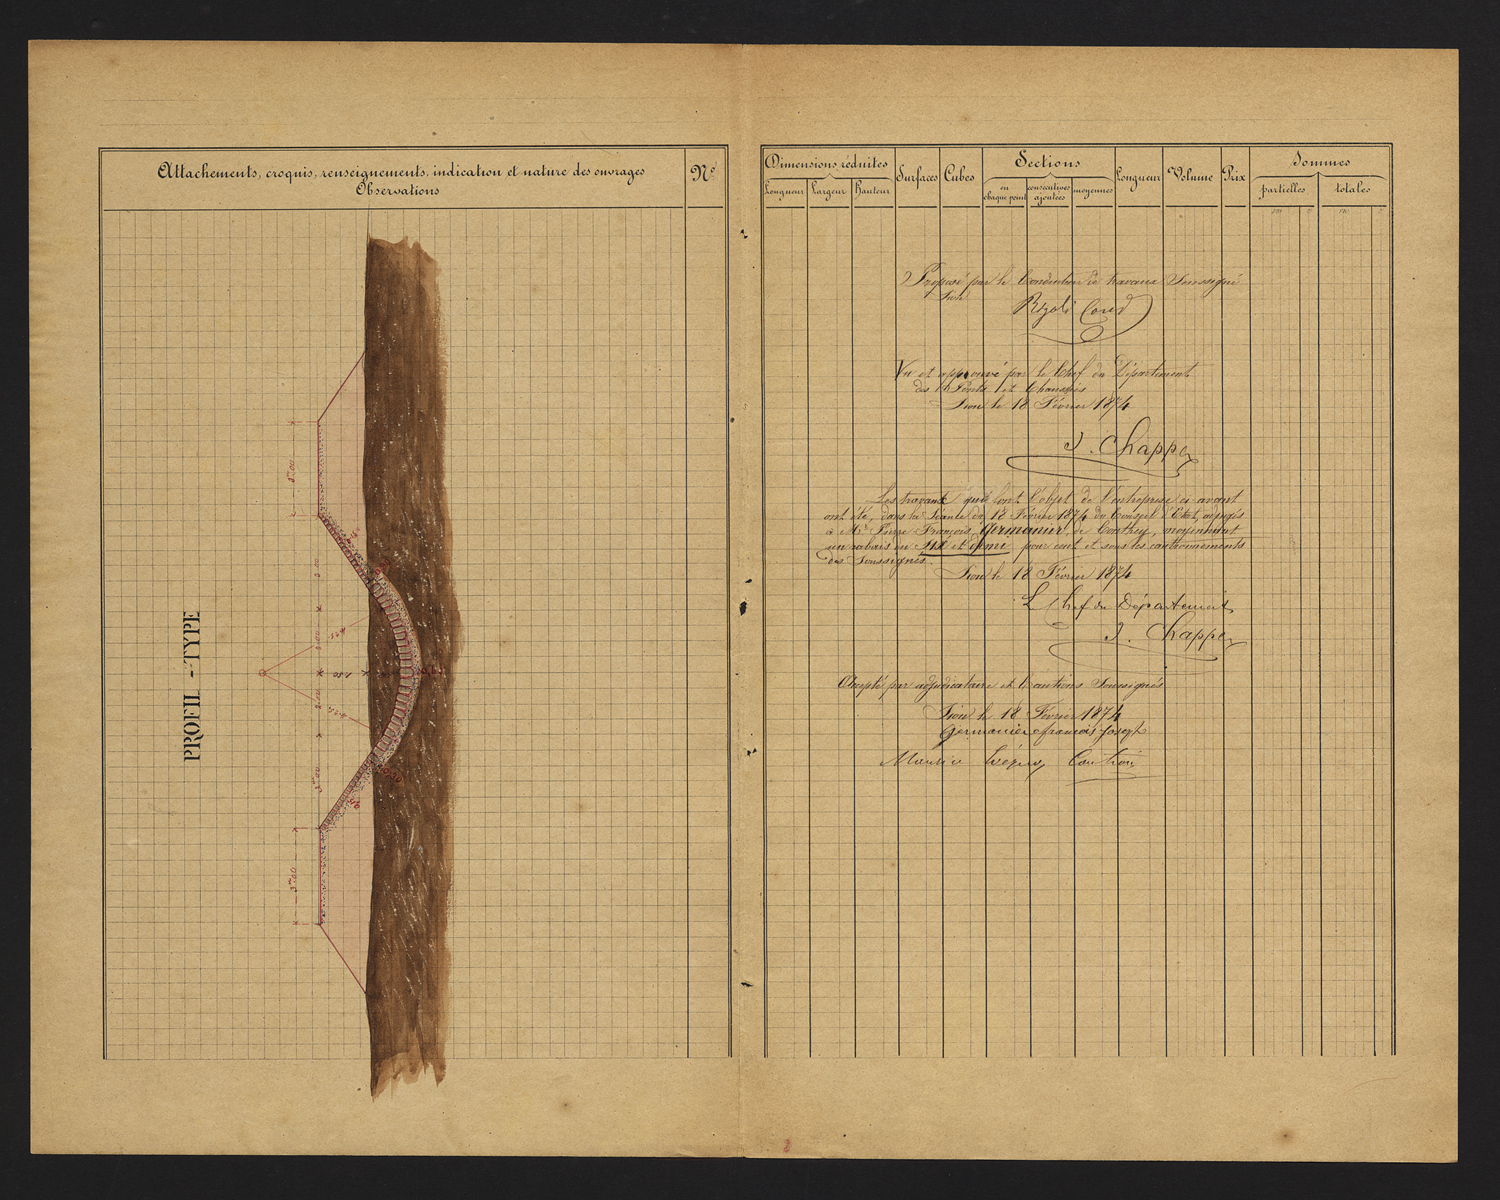 Attachements, croquis, renseignements, indication et nature des ouvrages
Observations
No
PROFIL - TYPE
3m00
3m00
2.00
2.00
1.50
Dimensions réduites
Longueur
Largeur
Hauteur
Surfaces
Cubes
Sections
en chaque point
consécutives ajoutées
moyennes
Longueur
Volume
Prix
Sommes
partielles
totales
Proposé par le Conducteur de travaux Soussigné
Sion
Vu et approuvé par le Chef du Département
des Ponts et Chaussées
Sion le 18 Février 1874
J. Chappex
Les travaux qui font l'objet de l'entreprise ci-avant
ont été, dans la Séance du 18 Février 1874 du Conseil d'Etat, adjugés
à Mr. Pierre François Germanier, de Conthey, moyennant
un rabais du six et demi pour cent et sous les cautionnements
des Soussignés.
Sion le 18 Février 1874
L Chef du Département
J. Chappex
Accepté par adjudicataire et Cautions Soussignés
Sion le 18 Février 1874
Germanier françois Joseph
Maurice Caution